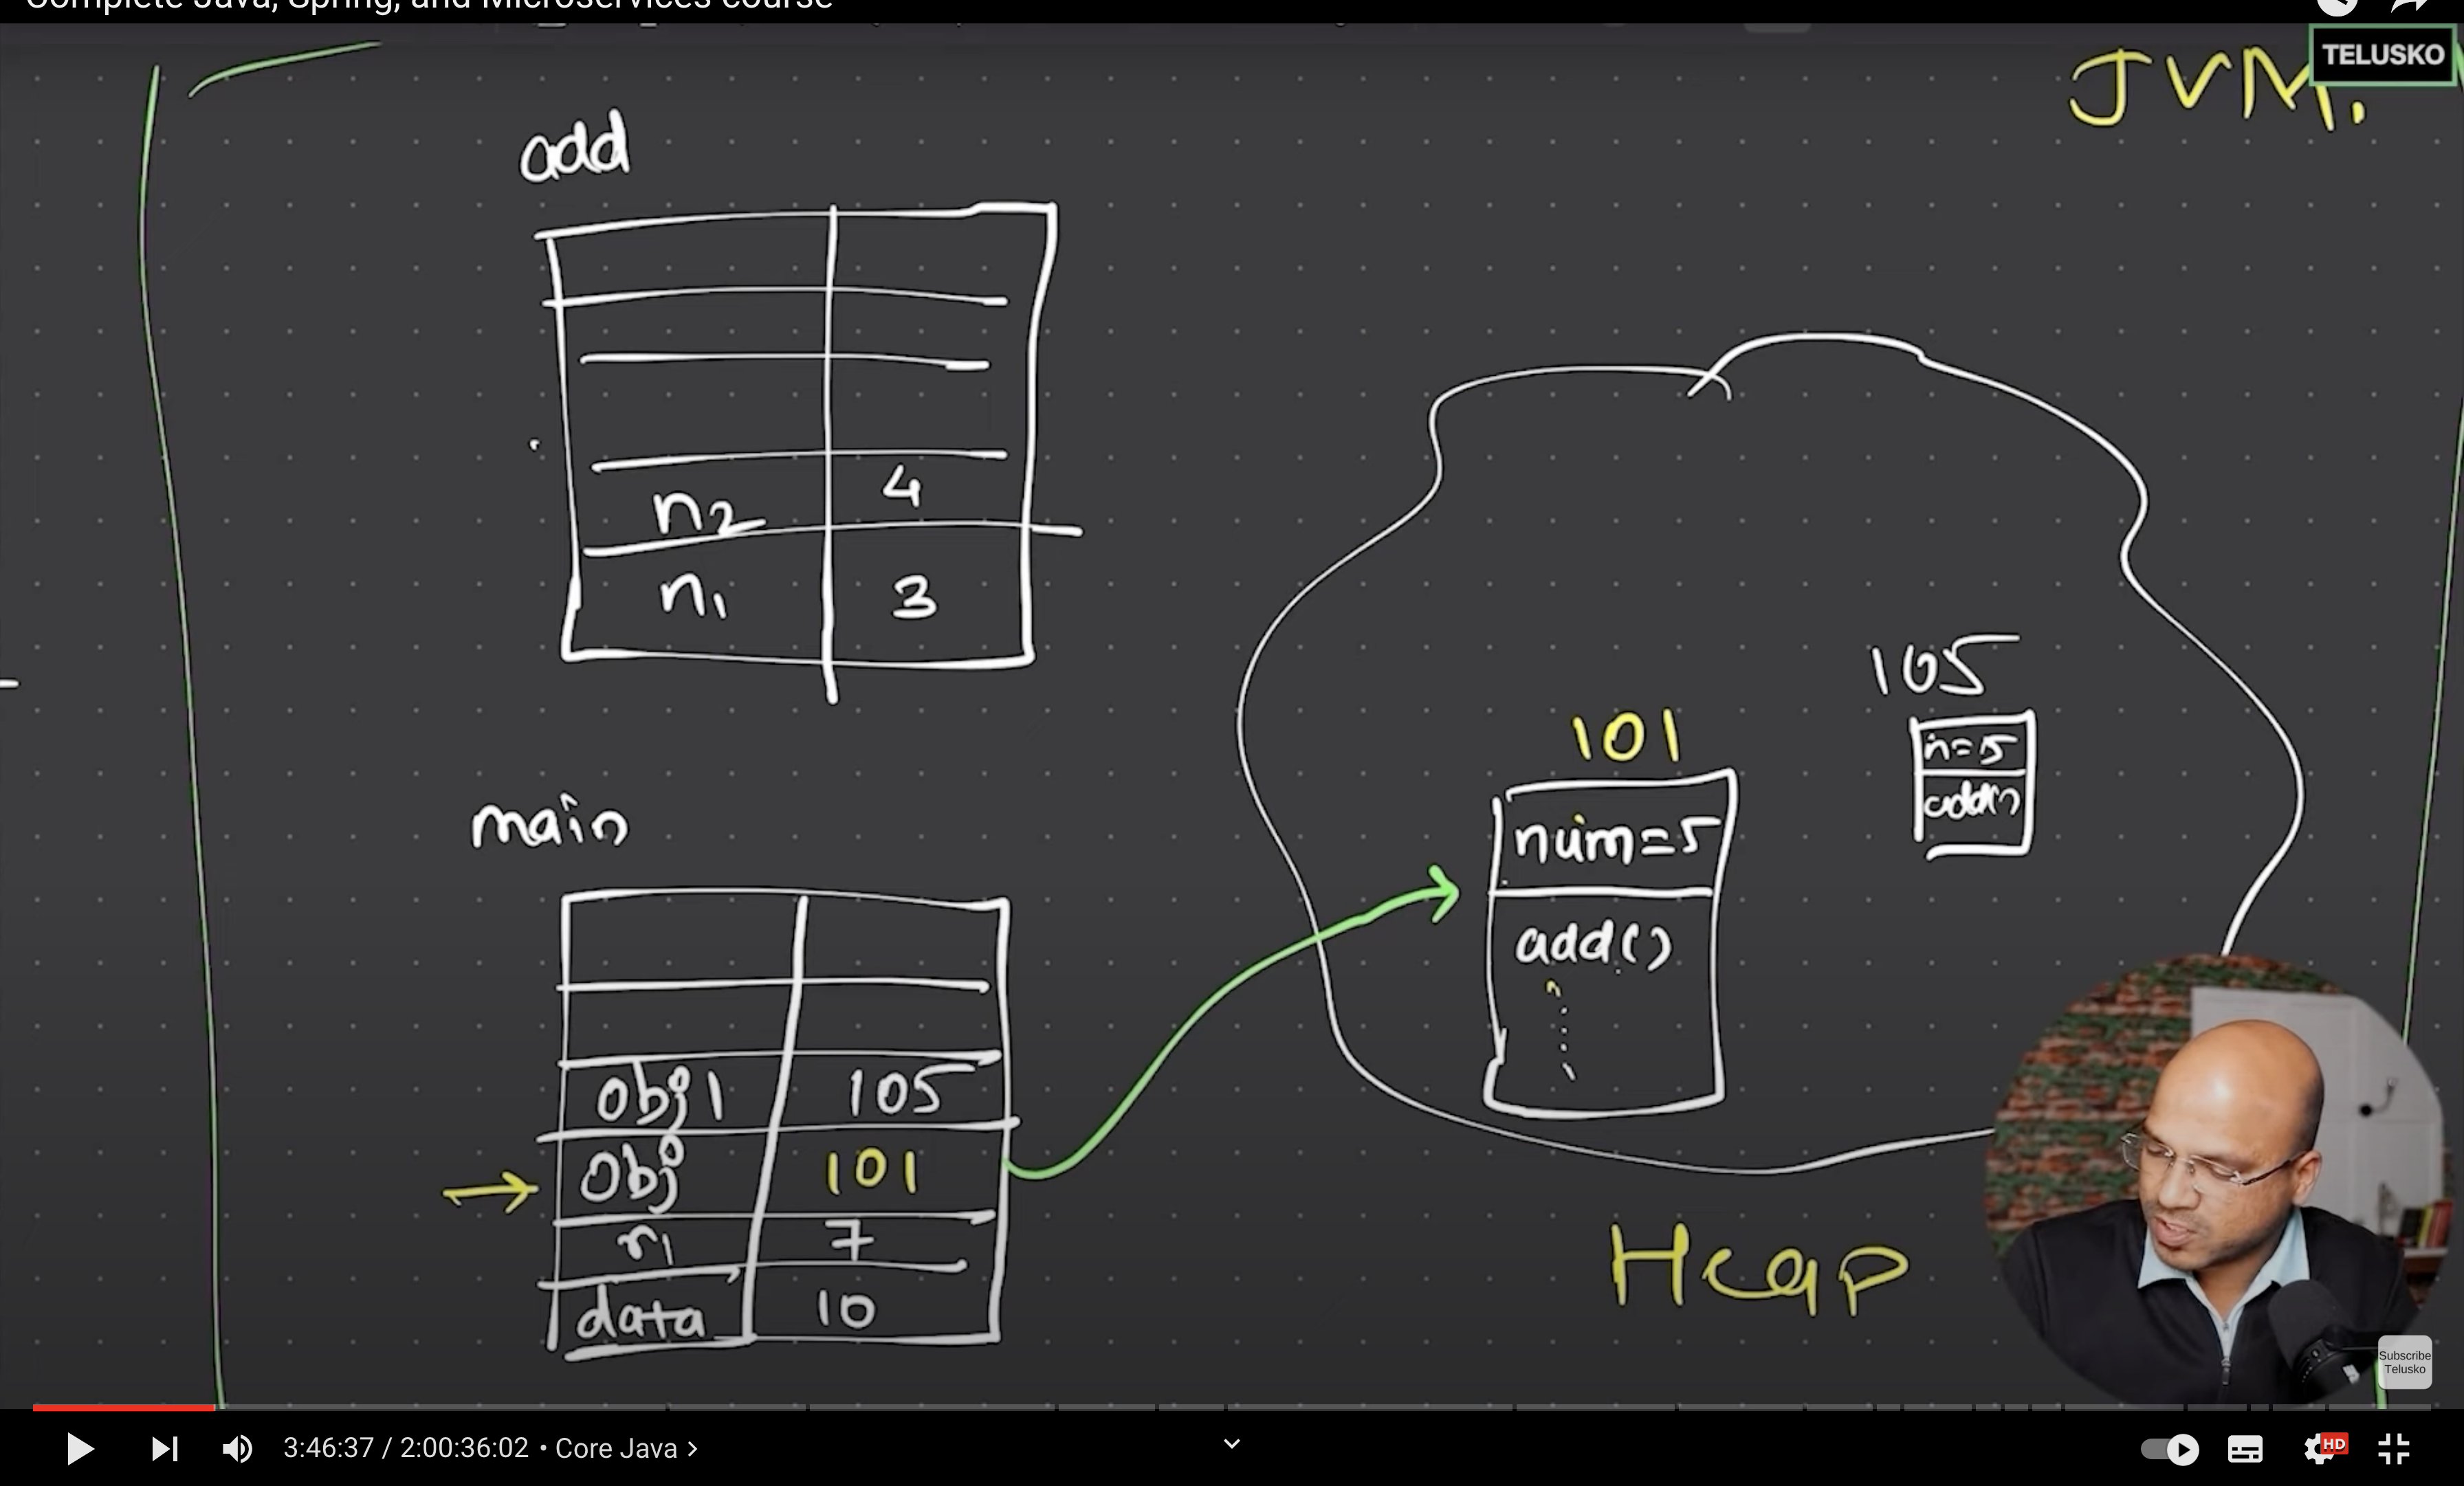 Complete Java, Spring, and Microservices course
TELUSKO
JVM.
add
n2 4
n1 3
main
obj1 105
obj 101
n1 7
data 10
101
num=5
add()
105
n=5
add()
Heap
Subscribe
Telusko
3:46:37 / 2:00:36:02 • Core Java >
HD